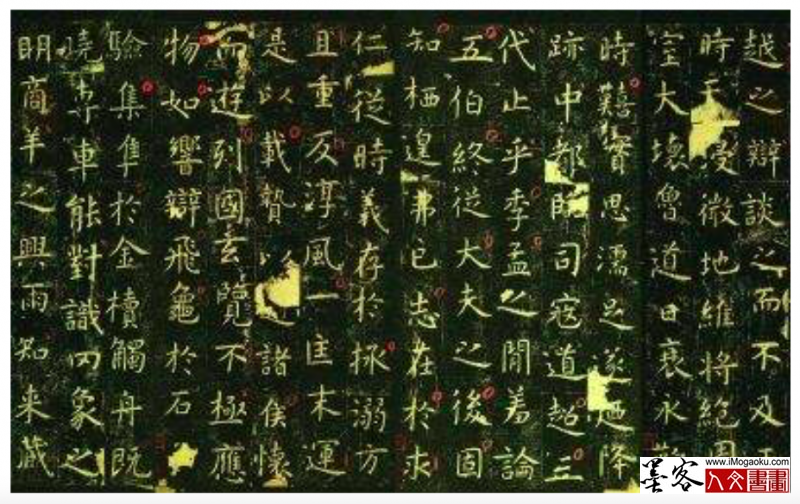 越之辯談之而不及
時天浸微地維將絕周
室大壞魯道日衰永
時囏實思濡足遂迺降
跡中都臨司寇道超三
代止乎季孟之閒羞論
五伯終從大夫之後固
知栖遑弗已志在於求
仁從時義存於拯溺方
且重反淳風一匡末運
是以載贄以諸侯懷
而遊列國玄覽不極應
物如響辯飛龜於石
驗集隼於金櫝觸舟既
曉專車能對識罔象之
明商羊之興雨知来藏
墨客
www.iMogaoku.com
人文書畫